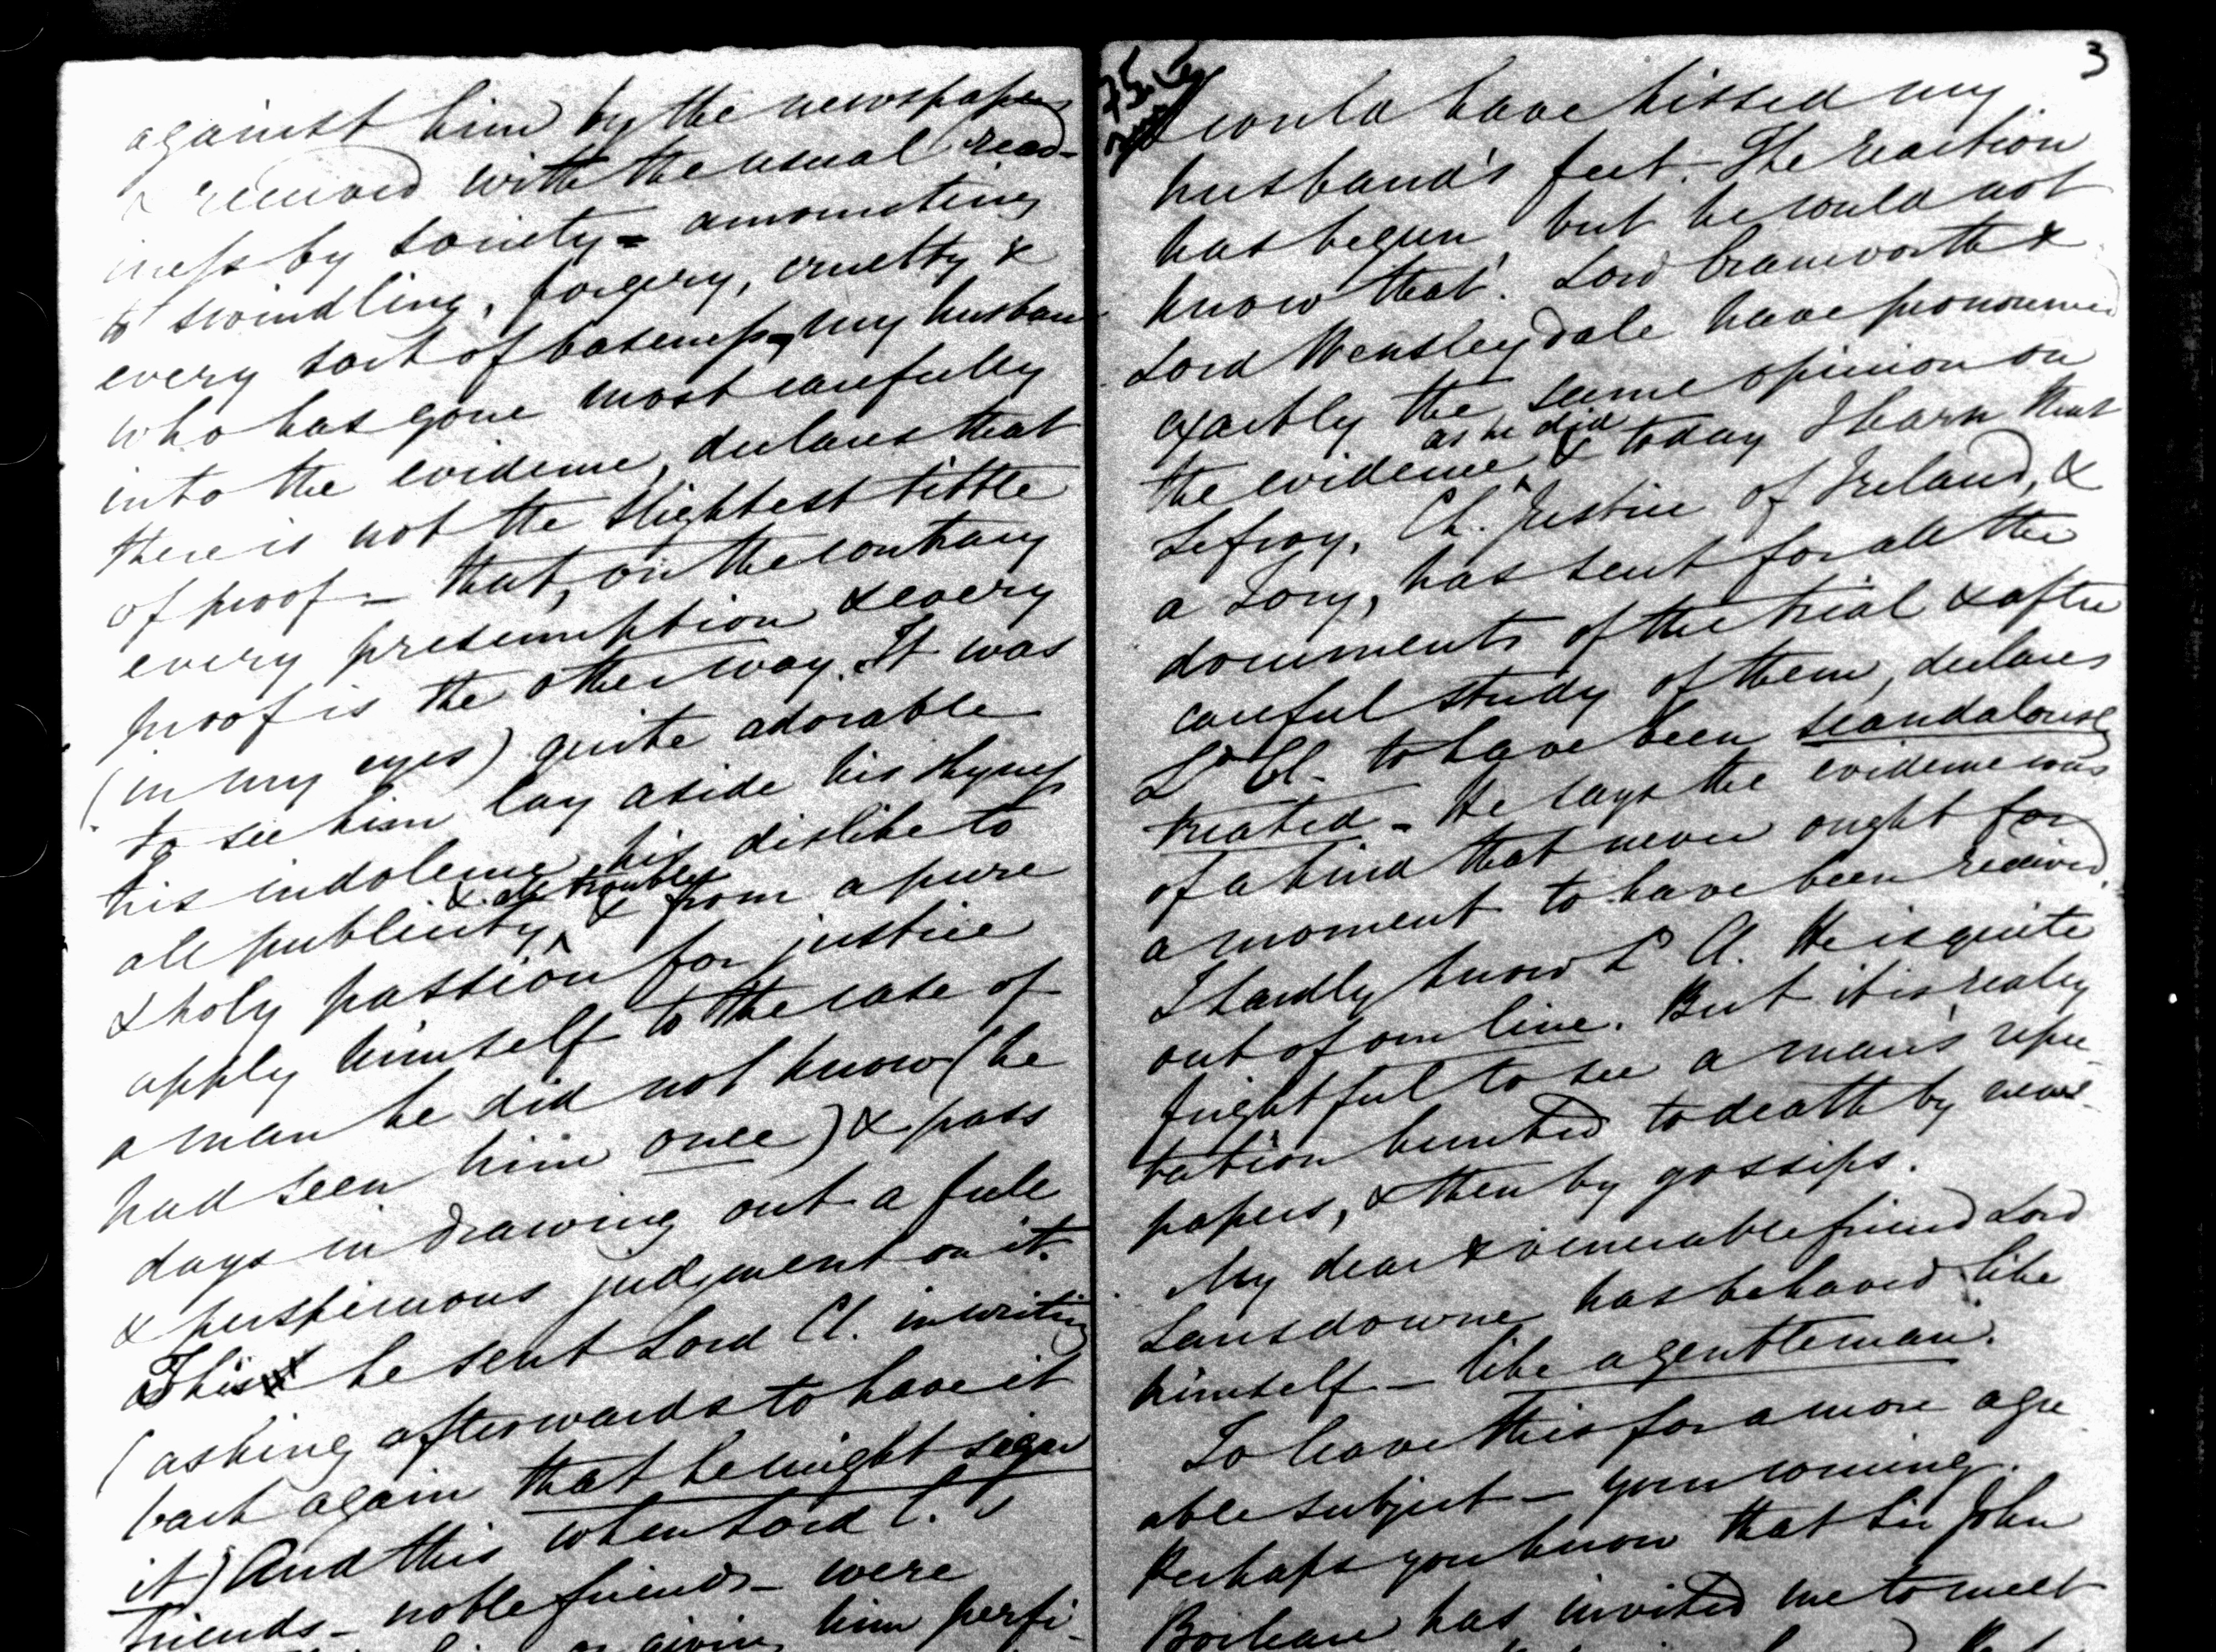 against him by the newspapers
& received with the usual read-
iness by society = amounting
to swindling, forgery, cruelty &
every sort of baseness, my husband
who has gone most carefully
into the evidence, declares that
there is not the slightest tittle
of proof – that, on the contrary
every presumption & every
proof is the other way. It was
(in my eyes) quite adorable
to see him lay aside his shyness
his indolence, his dislike to
all publicity, & all trouble, & from a pure
& holy passion for justice
apply himself to the case of
a man he did not know (he
had seen him once) & pass
days in drawing out a full
& perspicuous judgment on it.
This he sent Lord Cl. in writing
(asking afterwards to have it
back again that he might sign
it) And this when Lord C.'s
friends – noble friends – were
giving him perfi-
3
would have kissed my
husband's feet. The reaction
has begun, but he could not
know that. Lord Cranworth &
Lord Wensleydale have pronounced
exactly the same opinion on
the evidence as he did & today I learn that
Lefroy, Ch. Justice of Ireland, &
a Tory, has sent for all the
documents of the trial & after
careful study of them, declares
Ld Cl. to have been scandalously
treated – He says the evidence was
of a kind that never ought for
a moment to have been received.
I hardly know Ld Cl. He is quite
out of our line. But it is really
frightful to see a man's repu-
tation hunted to death by news-
papers, & then by gossips.
My dear & venerable friend Lord
Lansdowne has behaved like
himself – like a gentleman.
To leave this for a more agre-
able subject – your coming.
Perhaps you know that Sir John
Boileau has invited me to meet